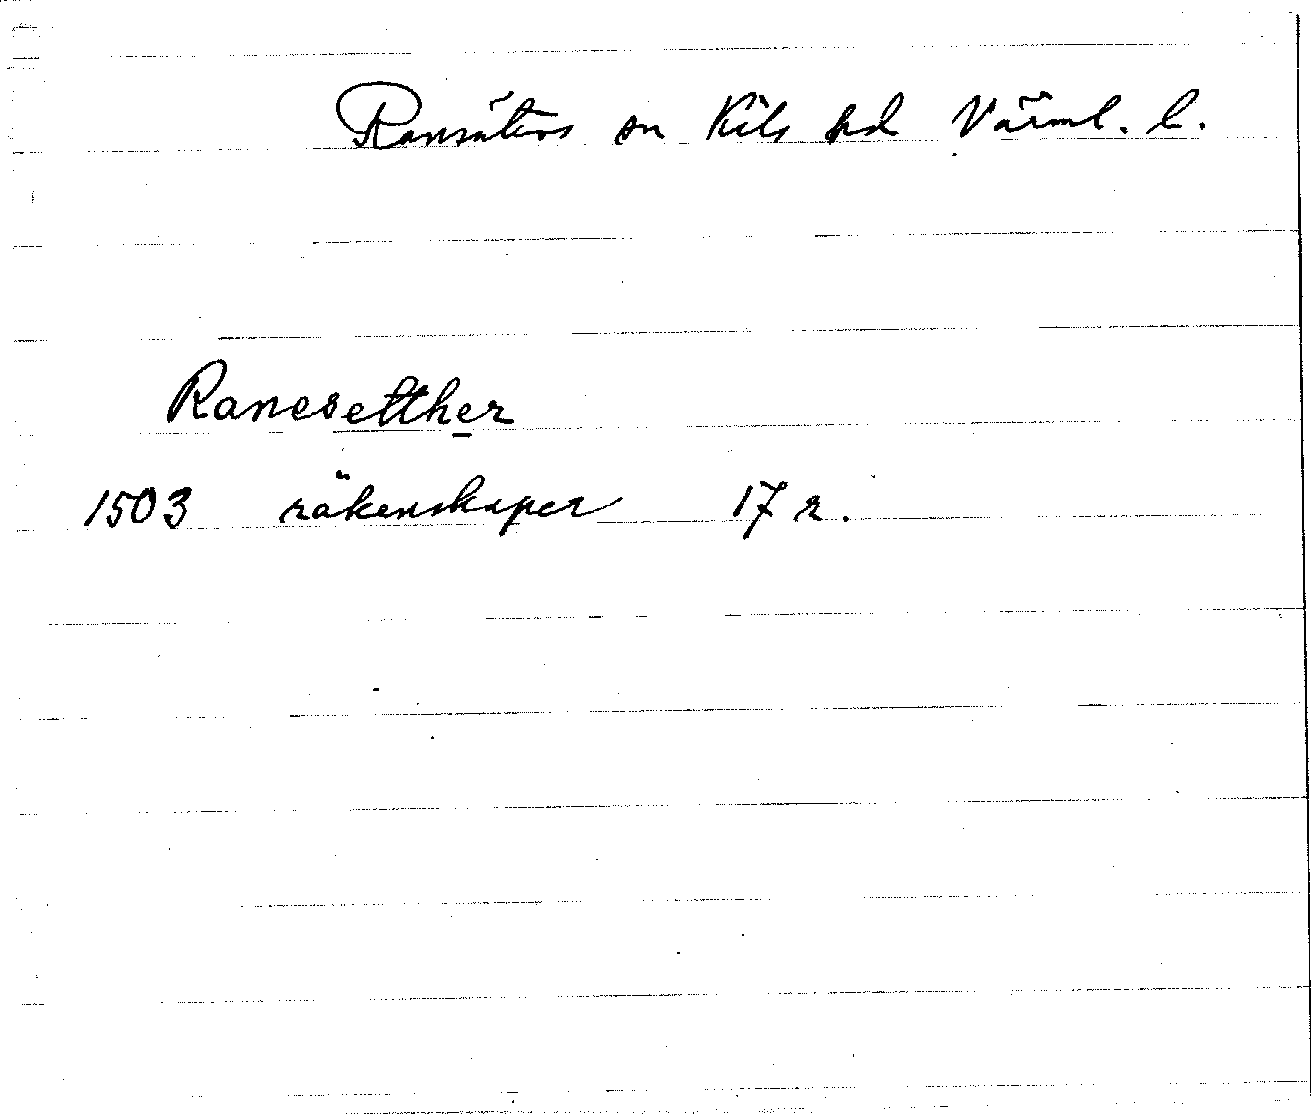 Ransäters sn Kils hd Värml. l.
Ranesetther
1503 räkenskaper 17 r.